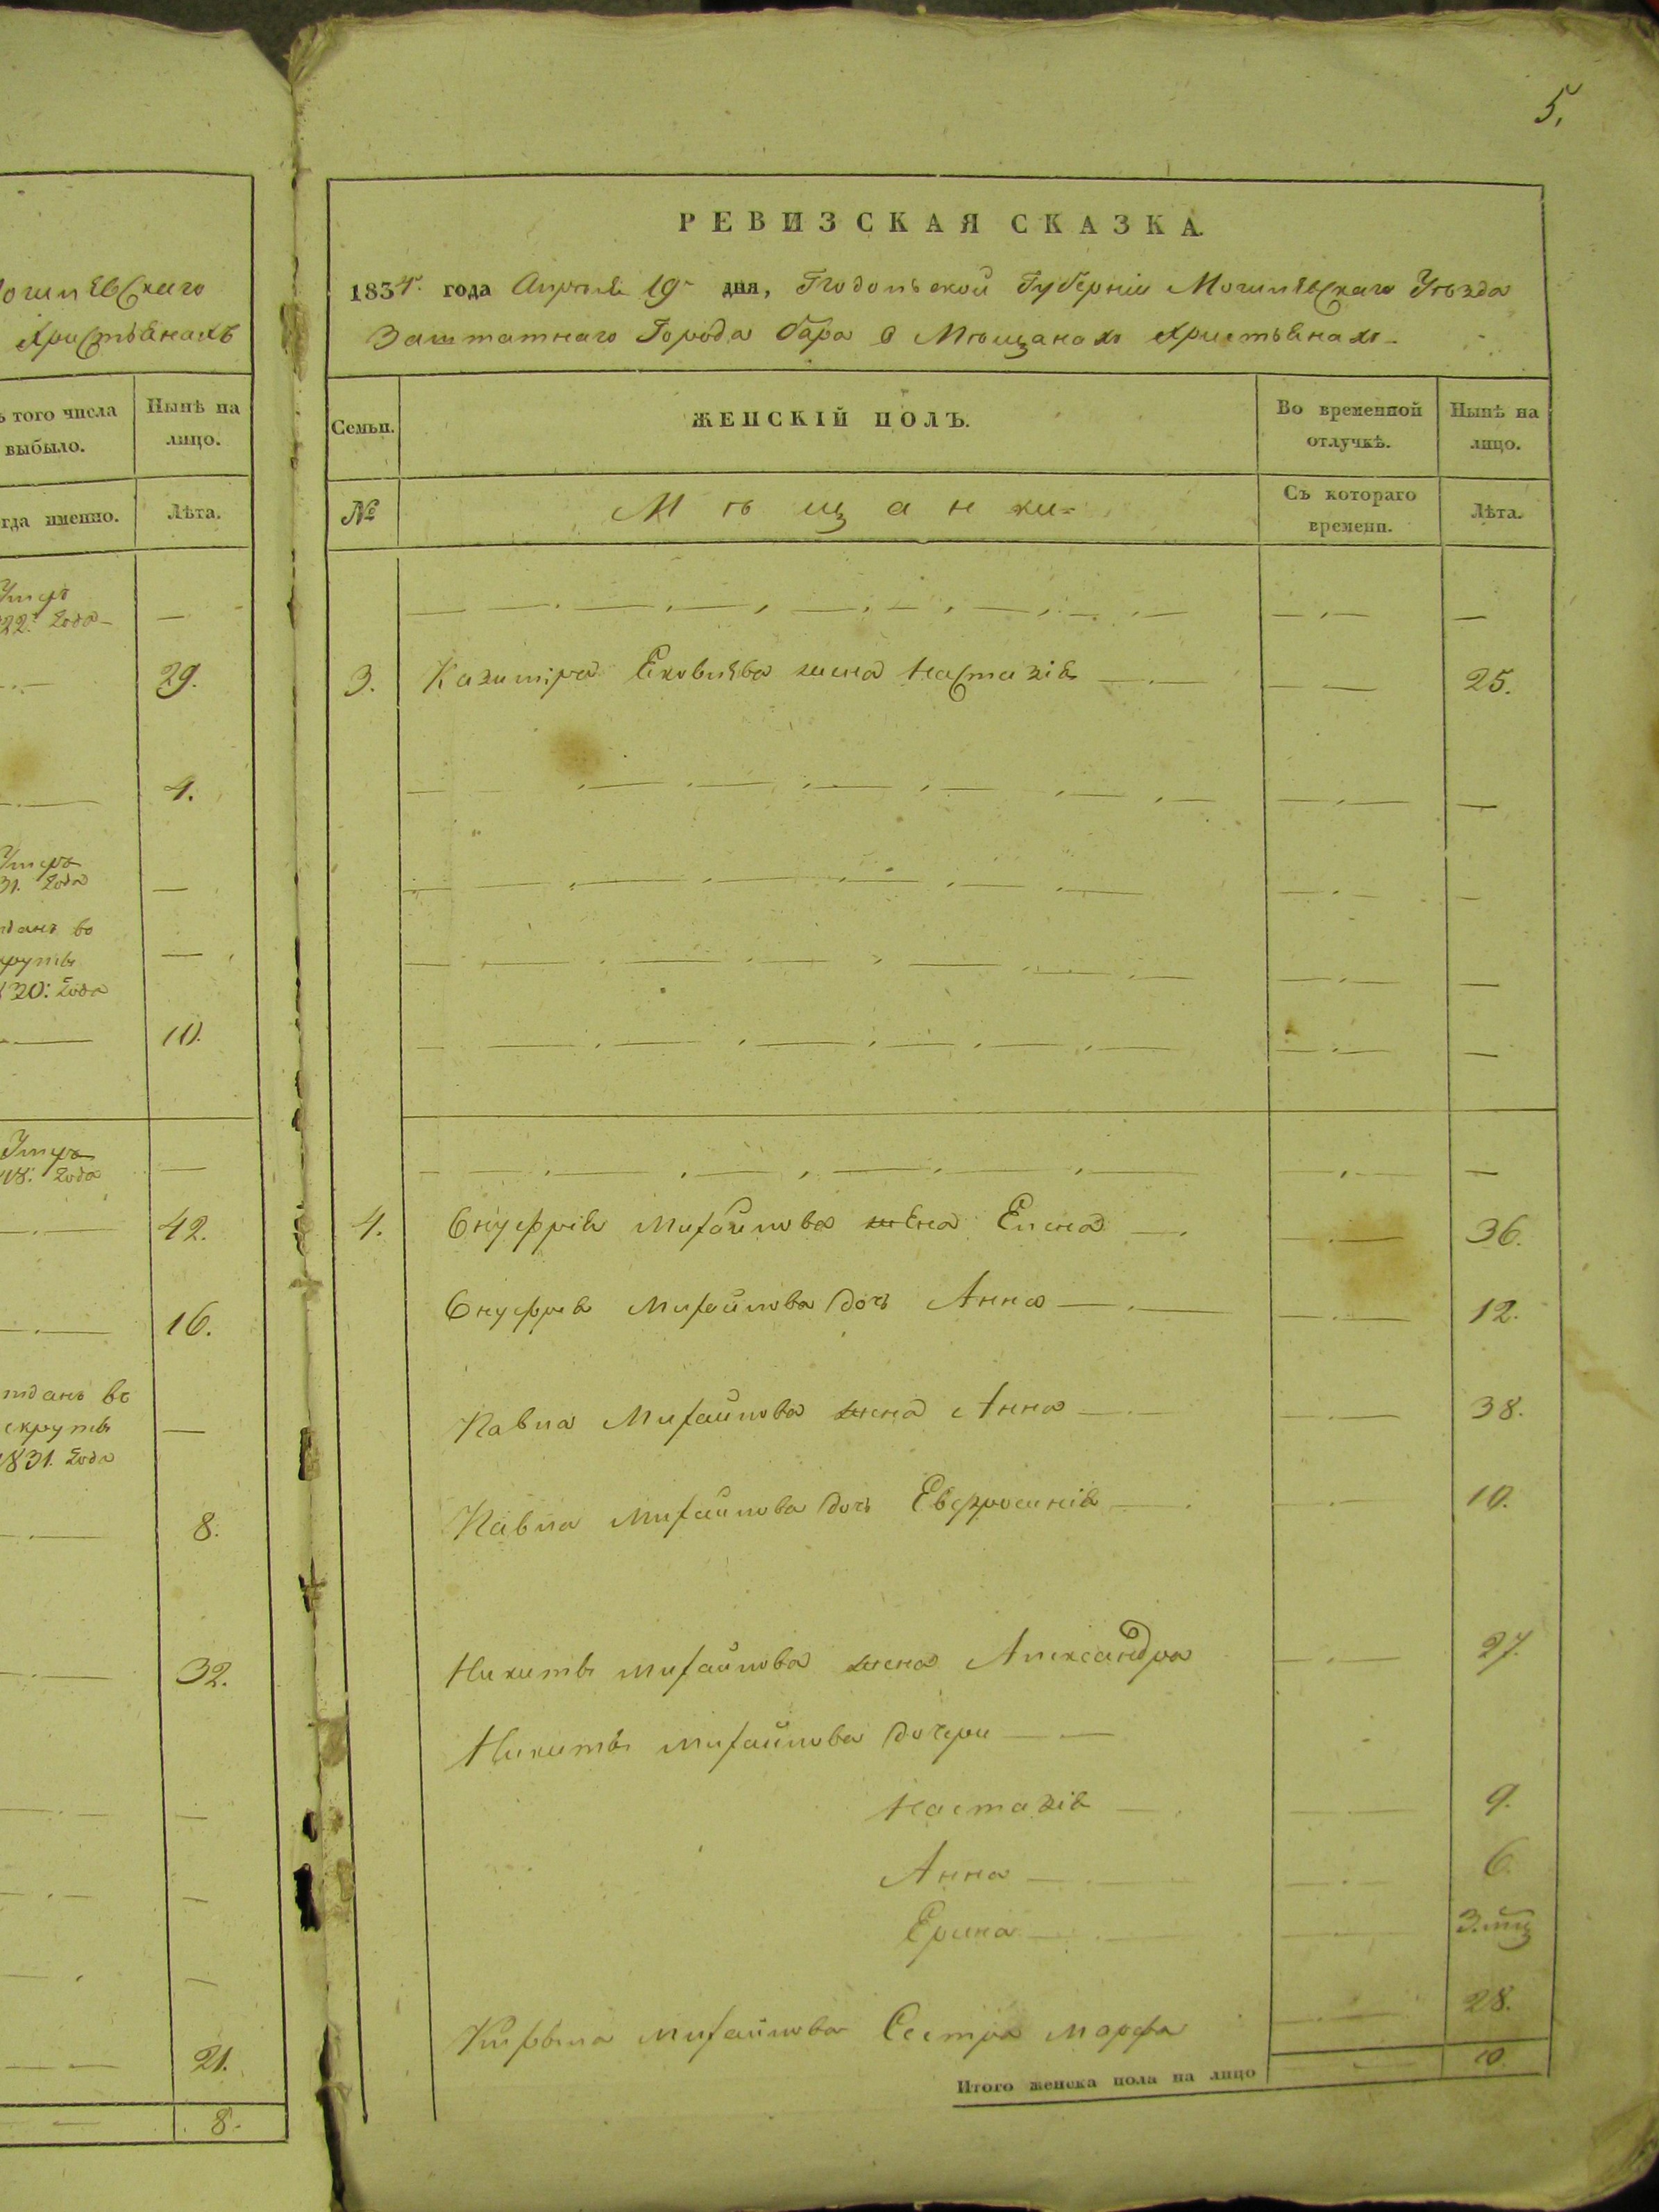 5.
РЕВИЗСКАЯ СКАЗКА.
1834. года Апреля 19 дня, Подольской Губерніи Могилевскаго Уѣзда
Заштатнаго Города Бара о Мѣщанахъ Христьянахъ
Христьянахъ
того числа
выбыло.
Нынѣ на
лицо.
именно.
Лѣта.
года
29.
4.
31. года
во
года
10.
года
42.
16.
1831. года
8.
32.
21.
8.
Семьи.
ЖЕНСКІЙ ПОЛЪ.
Во временной
отлучкѣ.
Нынѣ на
лицо.
№
Мѣщанки
Съ котораго
времени.
Лѣта.
3. Казимiра жена Настазія 25.
4. Онуфрія Михайлова жена Елена 36.
Онуфрія Михайлова дочь Анна 12.
Павла Михайлова жена Анна 38.
Павла Михайлова дочь Евфросинія 10.
Никиты Михайлова жена Александра 27.
Никиты Михайлова дочери
Настазія 9.
Анна 6.
Ерина 3.
Михайлова Сестра Марфа 28.
Итого женска пола на лицо 10.